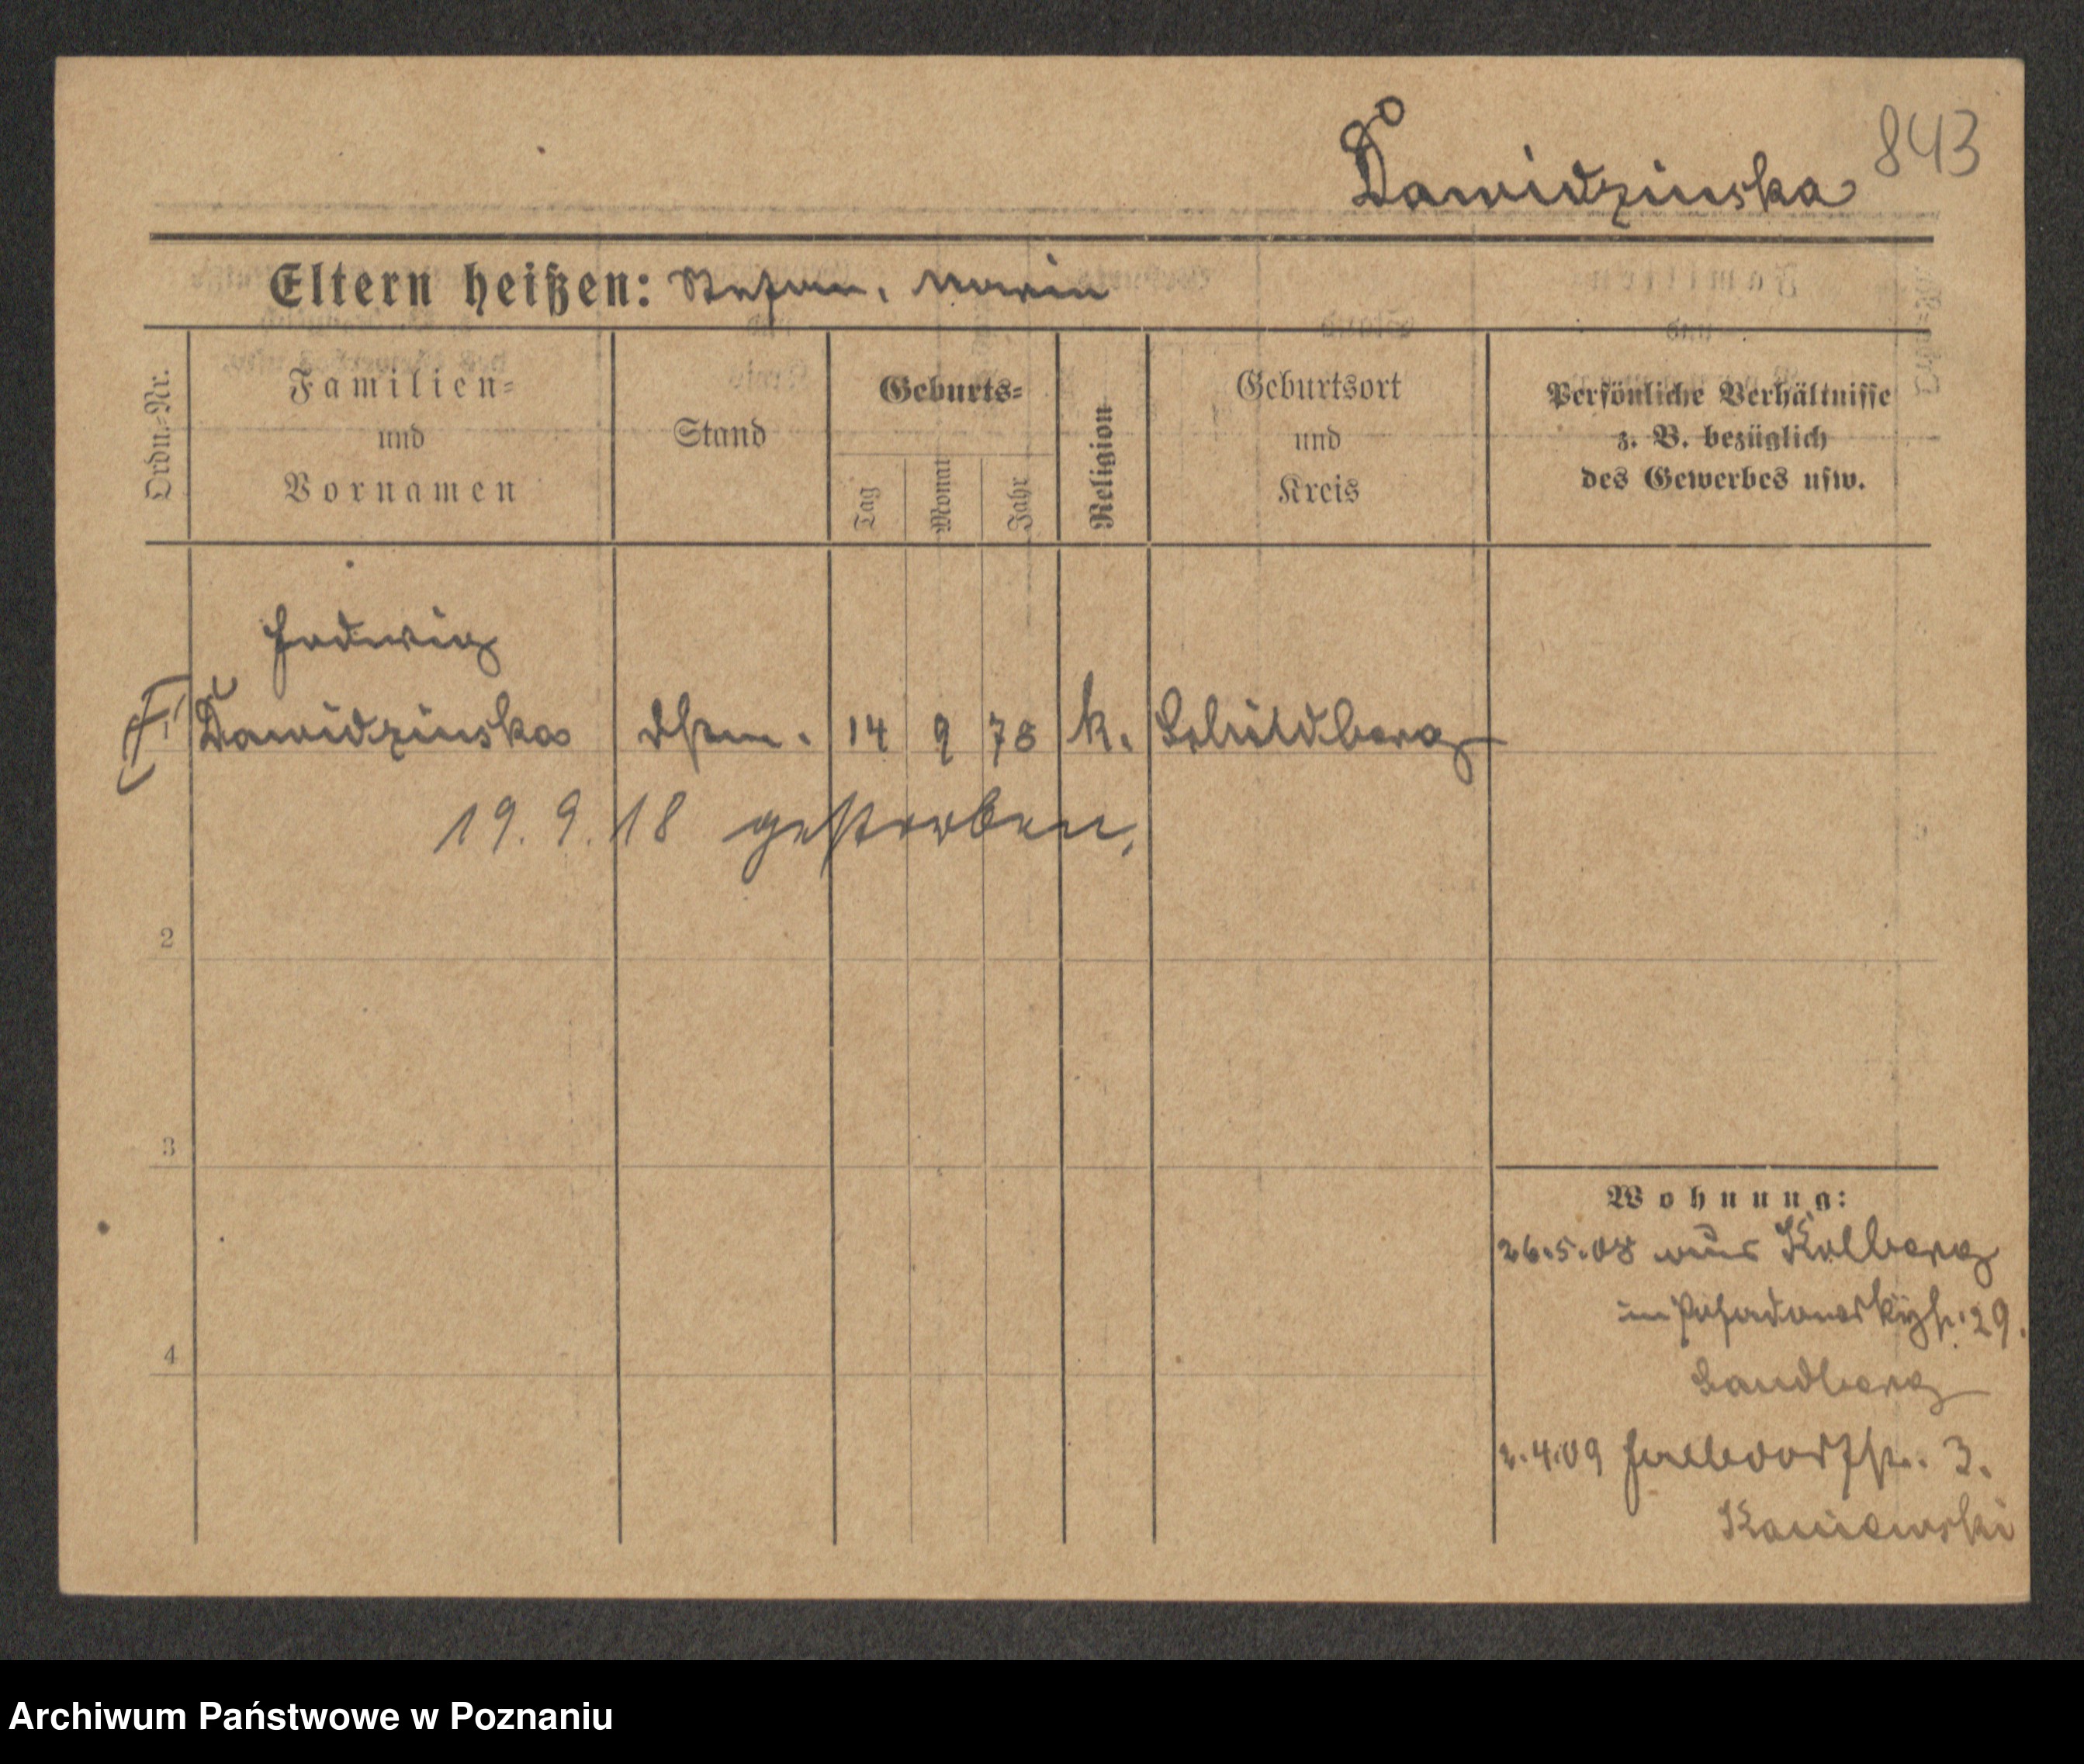 843
Dawidzinska
Eltern heißen: Stefan, Maria
Ordn.=Nr.
Familien=
und
Vornamen
Stand
Geburts=
Tag
Monat
Jahr
Religion
Geburtsort
und
Kreis
Persönliche Verhältnisse
z. B. bezüglich
des Gewerbes usw.
Hedwig
Dawidzinska
14 9 78 k. Schildberg
19.9.18 gestorben.
2
3
4
Wohnung:
26.5.08 aus Kolberg
29.
Sandberg
2.4.09 Halbdorfstr. 3.
Kaniewski
Archiwum Państwowe w Poznaniu